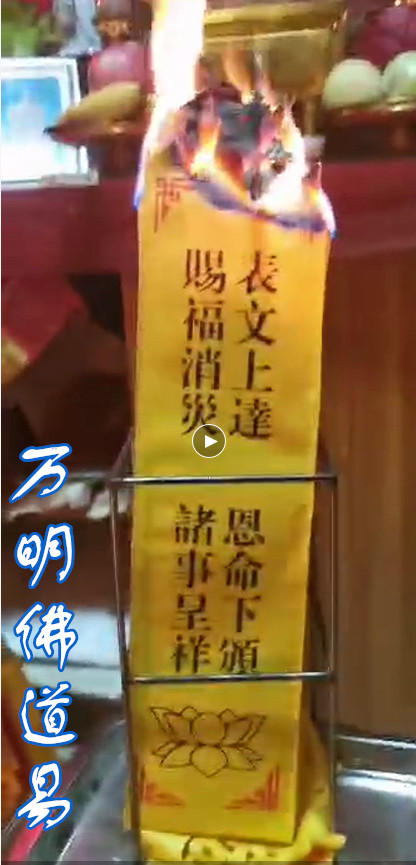 表文上達
賜福消災
恩命下頒
諸事呈祥
万明佛道易